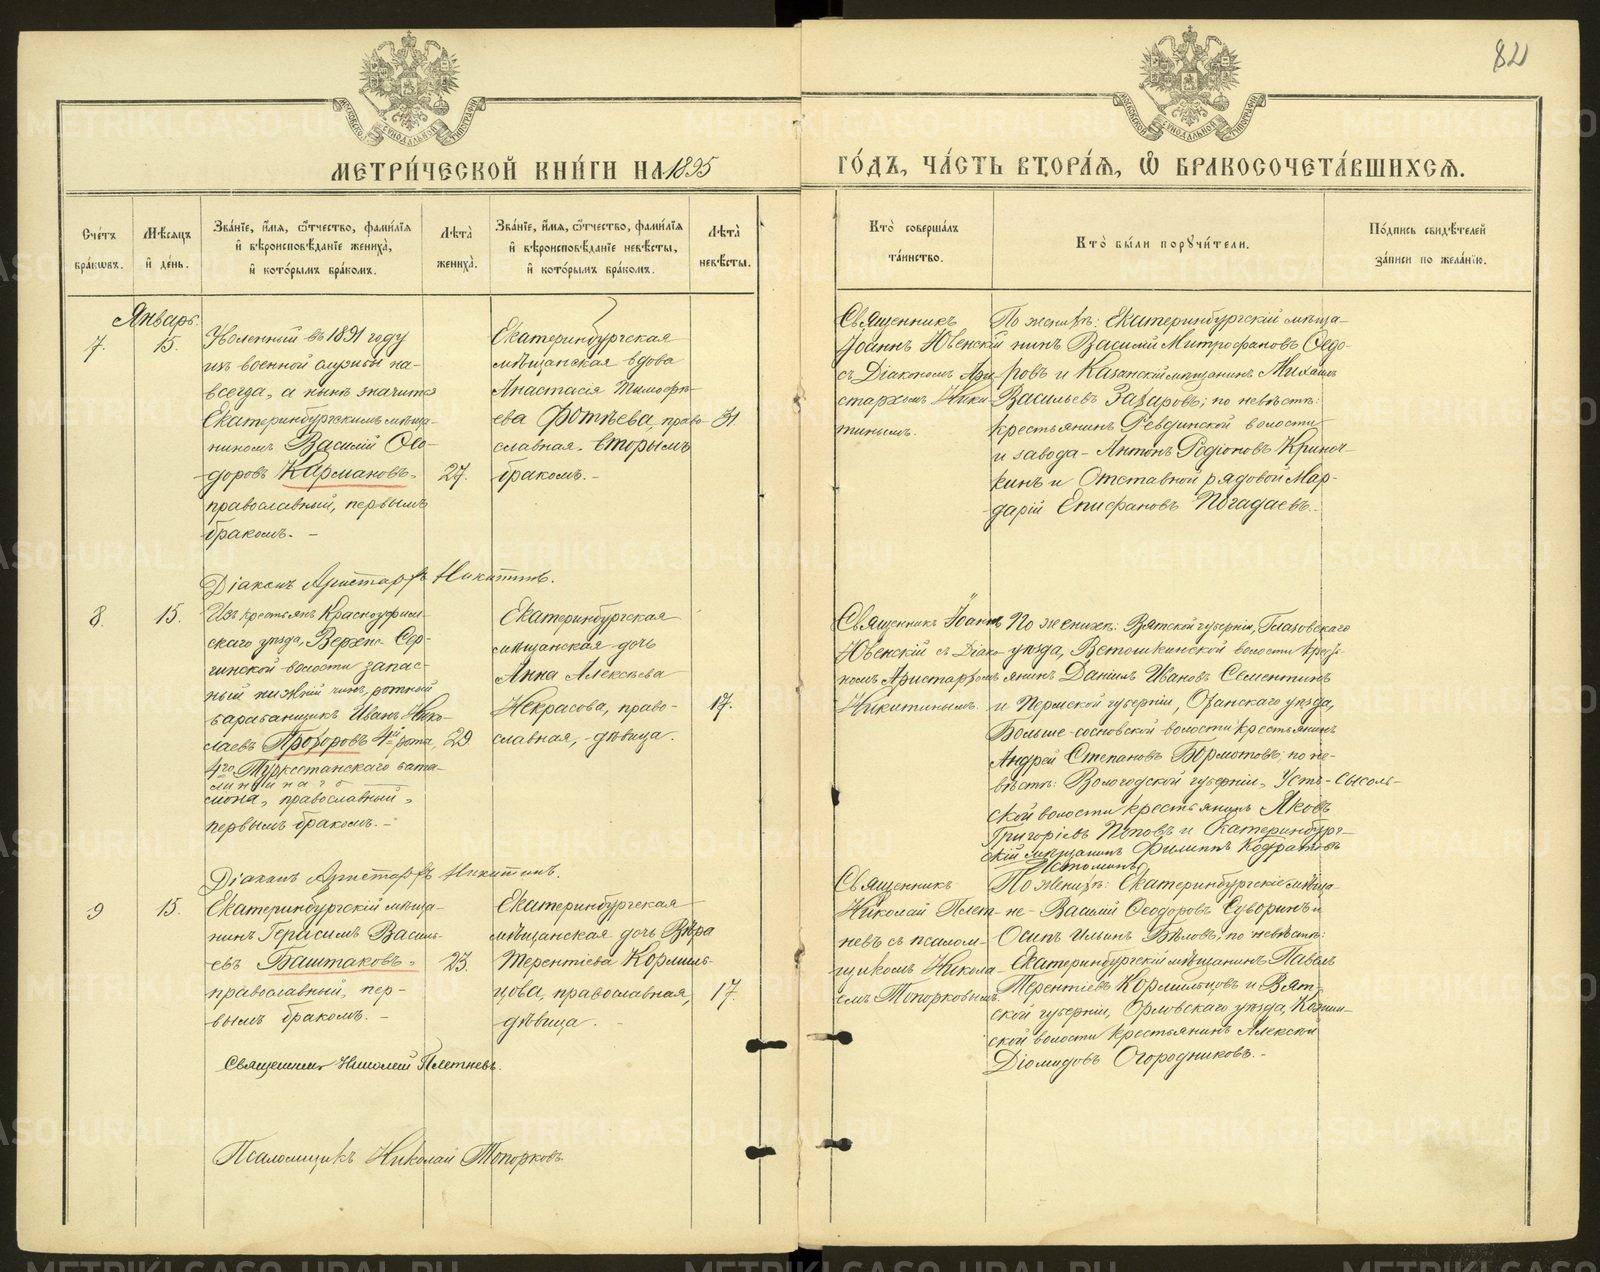 82
МЕТРИ́ЧЕСКОЙ КНИ́ГИ НА 1895
ГО́ДЪ, ЧА́СТЬ ВТОРА́Я, Ѽ БРАКОСОЧЕТА́ВШИХСЯ.
Сче́тъ бра́кωвъ.
Мѣ́сяцъ и҆ де́нь.
Зва́нїе, и҆́мя, ѻ҆́тчество, фами́лїя
и҆ вѣроисповѣ́данїе жениха̀,
и҆ кото́рымъ бра́комъ.
Лѣта̀ жениха̀.
Зва́нїе, и҆́мя, ѻ҆́тчество, фами́лїя
и҆ вѣроисповѣ́данїе невѣ́сты,
и҆ кото́рымъ бра́комъ.
Лѣта̀ невѣ́сты.
Кто̀ соверша́лъ
та́инство.
Кто̀ бы́ли поручи́тели.
По́дпись свидѣ́телей
за́писи по жела́нїю.
Январь.
7.
15.
Уволенный въ 1891 году
изъ военной службы на-
всегда, а нынѣ значится
Екатеринбургскимъ мѣща-
ниномъ Василій Ѳео-
доровъ Кармановъ,
православный, первымъ
бракомъ. –
27.
Екатеринбургская
мѣщанская вдова
Анастасія Тимофѣ-
ева Фотѣева, право-
славная, вторымъ
бракомъ. –
31
Священникъ
Іоаннъ Ювенскій
съ Діакономъ Ари-
стархомъ Ники-
тинымъ.
По женихѣ: Екатеринбургскій мѣща-
нинъ Василій Митрофановъ Ѳедо-
ровъ и Казанскій мѣщанинъ Михаилъ
Васильевъ Захаровъ; по невѣстѣ:
крестьянинъ Ревдинской волости
и завода – Антонъ Родіоновъ
и Отставной рядовой Мар-
дарій Епифановъ Погадаевъ. –
Діаконъ Аристархъ Никитинъ.
8.
15.
Изъ крестьянъ Красноуфим-
скаго уѣзда, Верхне-Сер-
гинской волости запас-
ный нижній чинъ, ротный
барабанщикъ Иванъ Нико-
лаевъ Прозоровъ 4й рота,
4го Туркестанскаго бата-
линейна
ліона, православный,
первымъ бракомъ. –
29
Екатеринбургская
мѣщанская дочь
Анна Алексѣева
Некрасова, право-
славная, дѣвица.
17.
Священникъ Іоаннъ
Ювенскій съ Діако-
номъ Аристархомъ
Никитинымъ.
По женихѣ: Вятской губерніи, Глазовскаго
уѣзда, Ветошкинской волости кресть-
янинъ Даніилъ Ивановъ Сементинъ
и Пермской губерніи, Оханскаго уѣзда,
Больше-сосновской волости крестьянинъ
Андрей Степановъ Бормотовъ; по не-
вѣстѣ: Вологодской губерніи, Усть-Сысоль-
ской волости крестьянинъ Яковъ
Григоріевъ Поповъ и Екатеринбург-
скій мѣщанинъ Филиппъ Кодратовъ
Истоминъ.
Діаконъ Аристархъ Никитинъ.
9
15.
Екатеринбургскій мѣща-
нинъ Герасимъ Василь-
евъ Баштаковъ,
православный, пер-
вымъ бракомъ. –
23.
Екатеринбургская
мѣщанская дочь Вѣра
Терентіева Кормиль-
цова, православная,
дѣвица. –
17.
Священникъ
Николай Плет-
невъ съ псалом-
щикомъ Никола-
емъ Топорковымъ.
По женихѣ: Екатеринбургскіе мѣща-
не – Василій Ѳеодоровъ Суворинъ и
Осипъ Ильинъ Бѣловъ; по невѣстѣ:
Екатеринбургскій мѣщанинъ Павелъ
Терентіевъ Кормильцовъ и Вят-
ской губерніи, Орловскаго уѣзда,
ской волости крестьянинъ Алексѣй
Діомидовъ Огородниковъ. –
Священникъ Николай Плетневъ.
Псаломщикъ Николай Топорковъ.